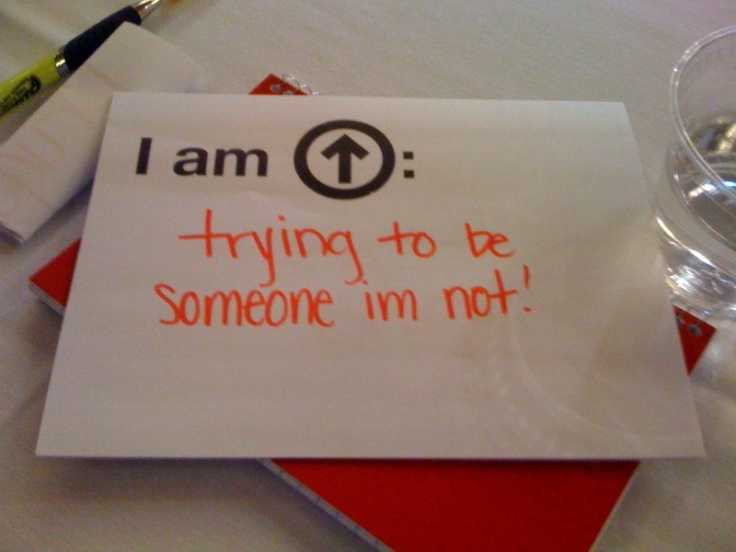 I am ↑:
trying to be
someone im not!